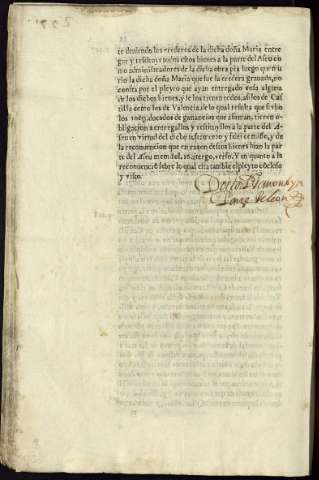 te deuiendo los erederos de la dicha doña Maria entre
gar y restituir todos estos bienes a la parte del Aseu co
mo administradores de la dicha obra pia luego que mu
rio la dicha doña Maria que fue la tercera grauada, no
consta por el pleyto que ayan entregado cosa alguna
de los dichos bienes, y se los tienen todos, assi los de Cas
tilla como los de Valencia, de lo qual resulta que si vbo
los ducados de ganancias que afirman, tienen o
bligacion a entregallos y restituyllos a la parte del Aseu
en virtud del dicho testamento y fideicomisso, y de
la reconuencion que en razon destos bienes hizo la par
te del Aseu memorial, y en quanto a la
reconuencion sobre lo qual esta tambien el pleyto concluso
y visto.